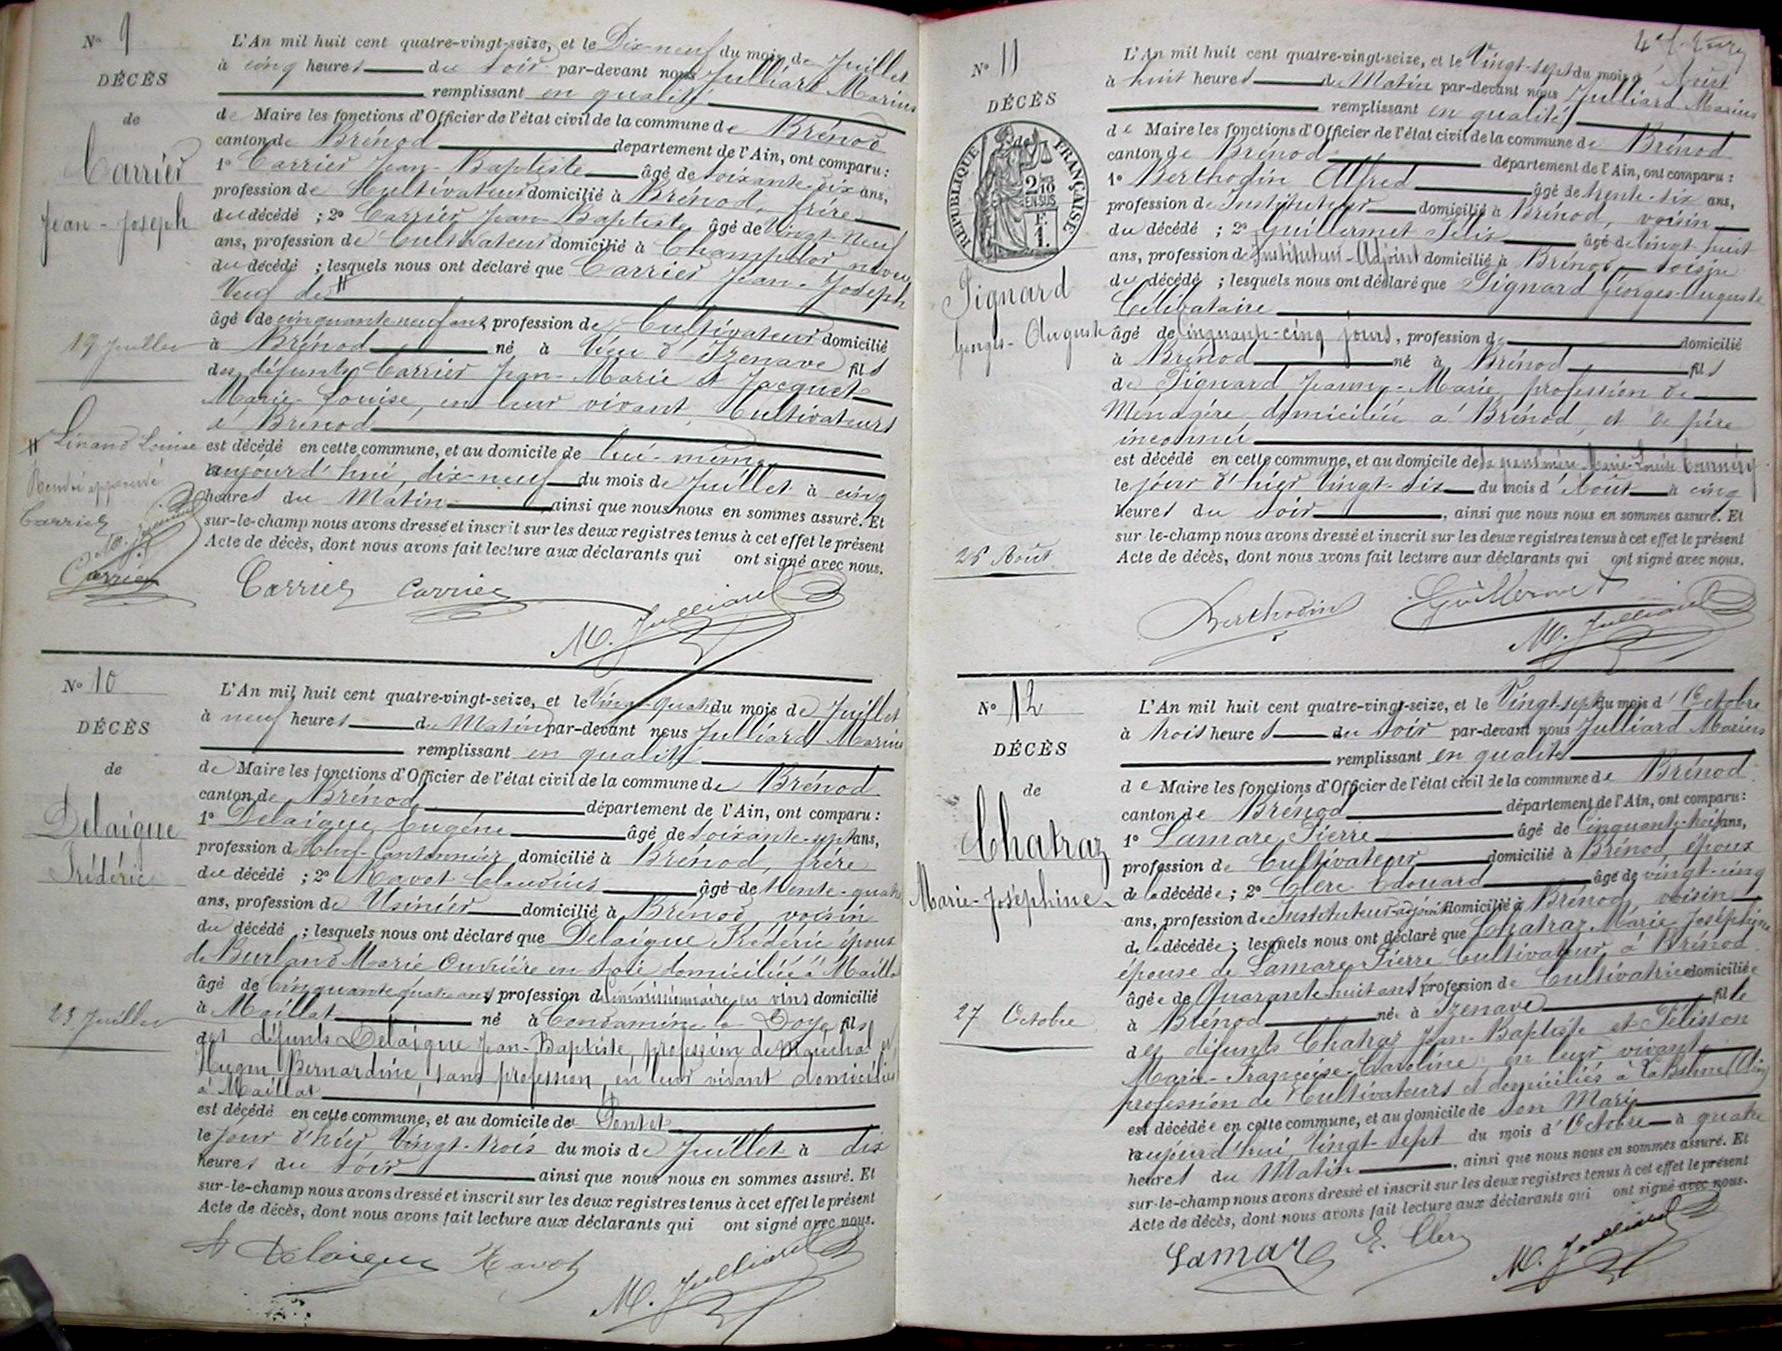 N° 9
DÉCÈS
de
Carrier
Jean-Joseph
19 Juillet
Linand Louise
Renvoi approuvé
Carrier
M. Julliard
Carrier
L'An mil huit cent quatre-vingt-seize, et le Dix-neuf du mois de Juillet
à cinq heures du soir par-devant nous Julliard Marius
remplissant en qualité
de Maire les fonctions d'Officier de l'état civil de la commune de Brénod
canton de Brénod département de l'Ain, ont comparu :
1° Carrier Jean-Baptiste âgé de soixante-dix ans,
profession de Cultivateur domicilié à Brénod, frère
du décédé ; 2° Carrier Jean-Baptiste âgé de vingt-neuf
ans, profession de Cultivateur domicilié à Champdor neveu
du décédé ; lesquels nous ont déclaré que Carrier Jean-Joseph
Veuf de #
âgé de cinquante-neuf ans, profession de Cultivateur domicilié
à Brénod né à Vieu d'Izenave fils
des défunts Carrier Jean-Marie et Jacquet
Marie-Louise, en leur vivant, Cultivateurs
à Brénod
est décédé en cette commune, et au domicile de lui-même
aujourd'hui, dix-neuf du mois de Juillet à cinq
heures du Matin ainsi que nous nous en sommes assuré. Et
sur-le-champ nous avons dressé et inscrit sur les deux registres tenus à cet effet le présent
Acte de décès, dont nous avons fait lecture aux déclarants qui ont signé avec nous.
Carrier Carrier
M. Julliard
N° 10
DÉCÈS
de
Delaigue
Frédéric
23 Juillet
L'An mil huit cent quatre-vingt-seize, et le Vingt-quatre du mois de Juillet
à neuf heures du Matin par-devant nous Julliard Marius
remplissant en qualité
de Maire les fonctions d'Officier de l'état civil de la commune de Brénod
canton de Brénod département de l'Ain, ont comparu :
1° Delaigue Eugène âgé de soixante-sept ans,
profession de Chef-Cantonnier domicilié à Brénod, frère
du décédé ; 2° Ravot Claudius âgé de trente-quatre
ans, profession de Usinier domicilié à Brénod, voisin
du décédé ; lesquels nous ont déclaré que Delaigue Frédéric époux
de Burland Marie Ouvrière en soie domiciliée à Maillat
âgé de cinquante-quatre ans, profession de Commissionnaire en vins domicilié
à Maillat né à Condamine la Doye fils
des défunts Delaigue Jean-Baptiste, profession de Maréchal et
Hugon Bernardine, sans profession, en leur vivant domiciliés
à Maillat
est décédé en cette commune, et au domicile de Pontet
le jour d'hier Vingt-trois du mois de Juillet à dix
heures du soir ainsi que nous nous en sommes assuré. Et
sur-le-champ nous avons dressé et inscrit sur les deux registres tenus à cet effet le présent
Acte de décès, dont nous avons fait lecture aux déclarants qui ont signé avec nous.
Delaigue Ravot
M. Julliard
N° 11
DÉCÈS
de
RÉPUBLIQUE FRANÇAISE
2/10 EN SUS
F.
1.
Pignard
Georges-Auguste
26 Août
L'An mil huit cent quatre-vingt-seize, et le Vingt-sept du mois d'Août
à huit heures du Matin par-devant nous Julliard Marius
remplissant en qualité
de Maire les fonctions d'Officier de l'état civil de la commune de Brénod
canton de Brénod département de l'Ain, ont comparu :
1° Berthodin Alfred âgé de trente-six ans,
profession de Instituteur domicilié à Brénod, voisin
du décédé ; 2° Guillermet Félix âgé de vingt-huit
ans, profession de Instituteur-Adjoint domicilié à Brénod voisin
du décédé ; lesquels nous ont déclaré que Pignard Georges-Auguste
Célibataire
âgé de Cinquante-cinq jours, profession de domicilié
à Brénod né à Brénod fils
de Pignard Jeanne-Marie, profession de
Ménagère, domiciliée à Brénod, et de père
inconnu
est décédé en cette commune, et au domicile de sa grand'mère Marie-Louise
le jour d'hier Vingt-six du mois d'Août à cinq
heures du soir, ainsi que nous nous en sommes assuré. Et
sur-le-champ nous avons dressé et inscrit sur les deux registres tenus à cet effet le présent
Acte de décès, dont nous avons fait lecture aux déclarants qui ont signé avec nous.
Berthodin Guillermet
M. Julliard
N° 12
DÉCÈS
de
Chatraz
Marie-Joséphine
27 Octobre
L'An mil huit cent quatre-vingt-seize, et le Vingt-sept du mois d'Octobre
à trois heures du soir par-devant nous Julliard Marius
remplissant en qualité
de Maire les fonctions d'Officier de l'état civil de la commune de Brénod
canton de Brénod département de l'Ain, ont comparu :
1° Lamare Pierre âgé de Cinquante-trois ans,
profession de Cultivateur domicilié à Brénod époux
de la décédée ; 2° Clerc Edouard âgé de vingt-cinq
ans, profession de Instituteur-adjoint domicilié à Brénod, voisin
de la décédée ; lesquels nous ont déclaré que Chatraz Marie-Joséphine
épouse de Lamare Pierre Cultivateur à Brénod
âgée de Quarante-huit ans, profession de Cultivatrice domiciliée
à Brénod née à Izenave fille
des défunts Chatraz Jean-Baptiste et Pélisson
Marie-Françoise-Caroline, en leur vivant
profession de Cultivateurs et domiciliés à La Balme (Ain)
est décédée en cette commune, et au domicile de son Mari
aujourd'hui Vingt-sept du mois d'Octobre à quatre
heures du Matin, ainsi que nous nous en sommes assuré. Et
sur-le-champ nous avons dressé et inscrit sur les deux registres tenus à cet effet le présent
Acte de décès, dont nous avons fait lecture aux déclarants qui ont signé avec nous.
Lamare E. Clerc
M. Julliard